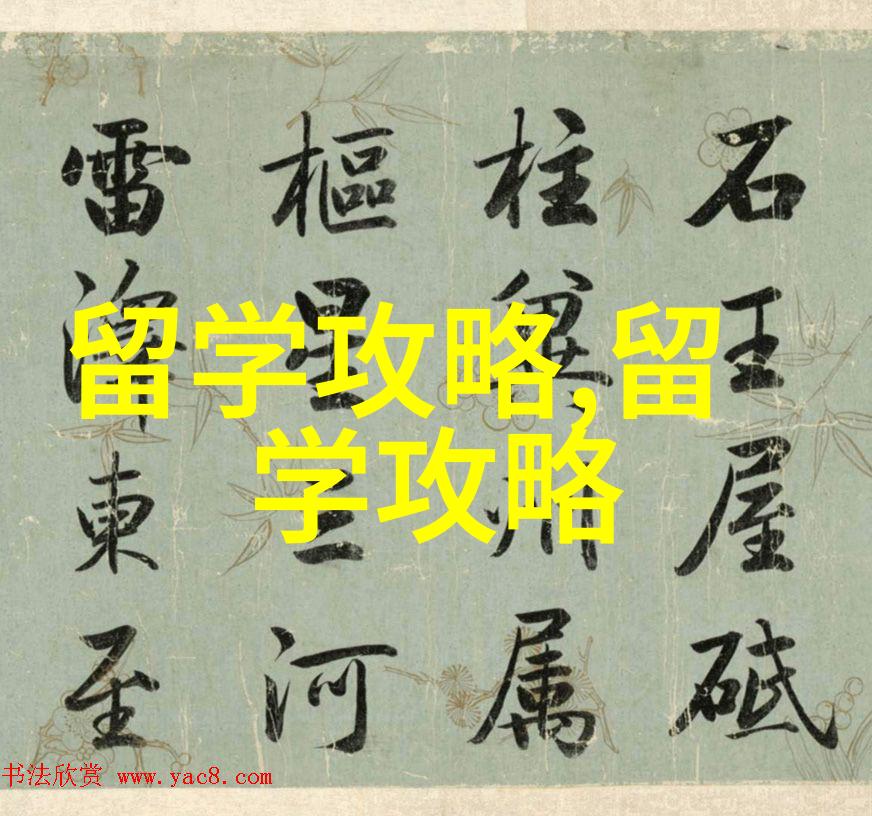 石王屋砥
柱冀州属
樞星三河
雷澤東至
留学攻略,留
学攻略
书法欣赏 www.yac8.com